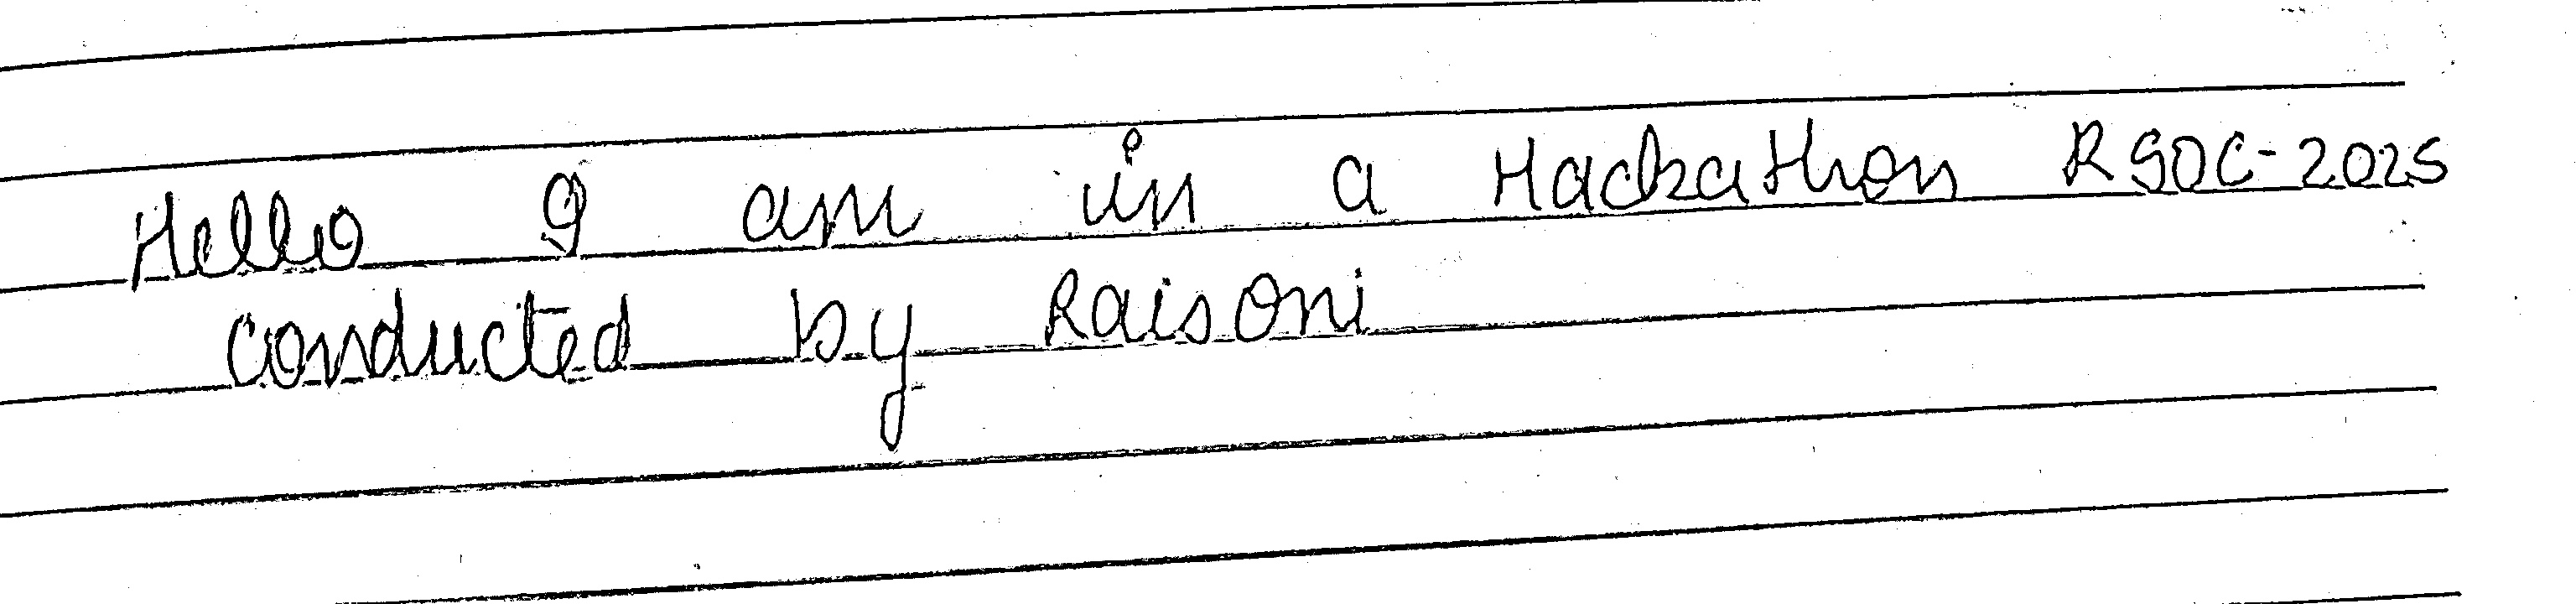 Hello I am in a Hackathon RSOC-2025
conducted by Raisoni